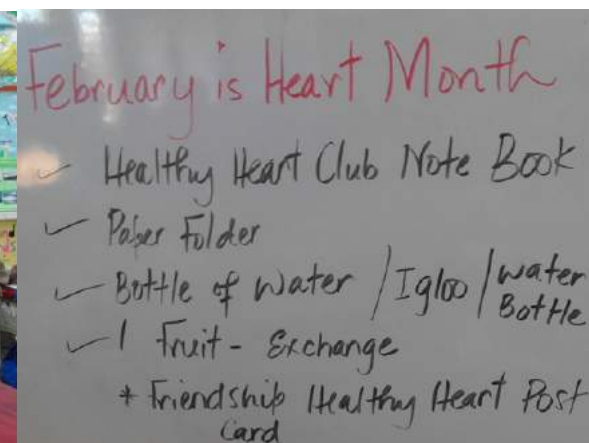 February is Heart Month
✓ Healthy Heart Club Note Book
✓ Paper Folder
✓ Bottle of Water / Igloo / Water
Bottle
✓ 1 Fruit - Exchange
* Friendship Healthy Heart Post
Card